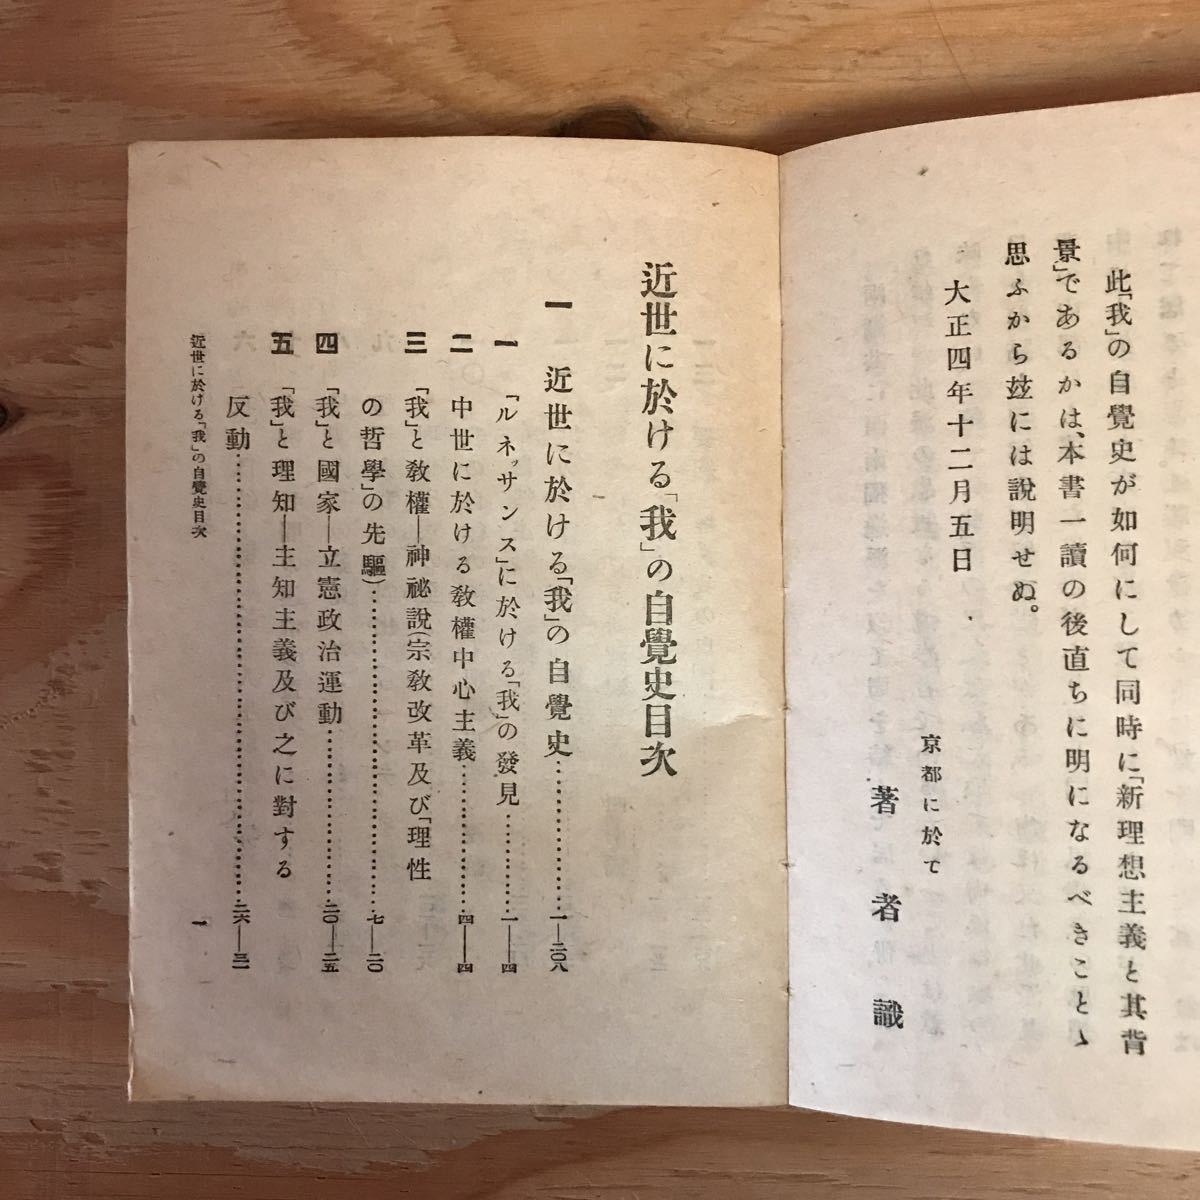 此「我」の自覺史が如何にして同時に「新理想主義と其背
景」であるかは、本書一讀の後直ちに明になるべきことゝ
思ふから玆には說明せぬ。
大正四年十二月五日
京都に於て
著者識
近世に於ける「我」の自覺史目次
一 近世に於ける「我」の自覺史…………一—二〇八
一 「ルネッサンス」に於ける「我」の發見…………一—四
二 中世に於ける敎權中心主義…………四—四
三 「我」と敎權—神祕說(宗敎改革及び「理性
の哲學」の先驅)…………七—二〇
四 「我」と國家—立憲政治運動…………二〇—二五
五 「我」と理知—主知主義及び之に對する
反動…………二六—三一
近世に於ける「我」の自覺史目次
一